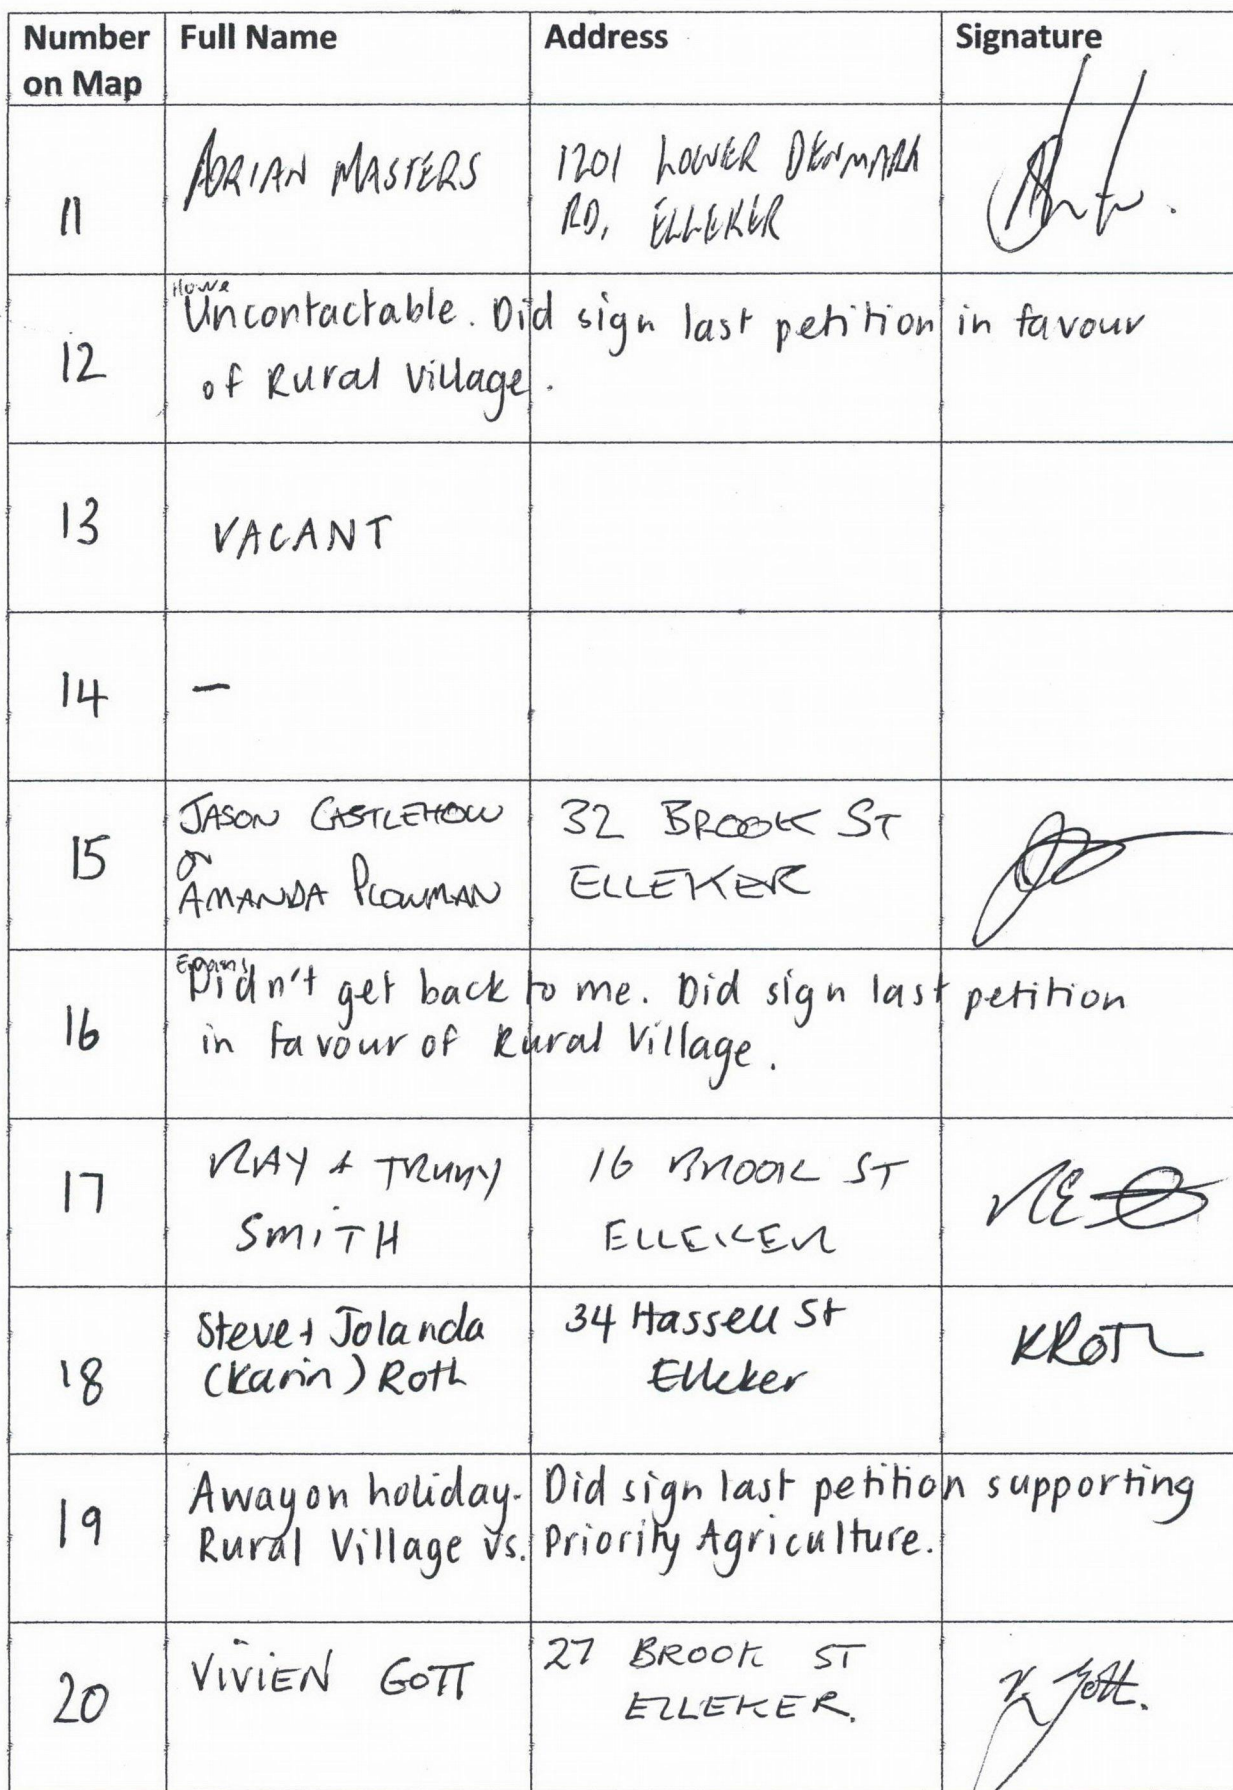 Number on Map Full Name Address Signature
11 ADRIAN MASTERS 1201 LOWER DENMARK
RD, ELLEKER
Howe
12 Uncontactable. Did sign last petition in favour
of Rural Village.
13 VACANT
14 –
15 JASON CASTLEHOW 32 BROOK ST
or ELLEKER
AMANDA PLOWMAN
Egans
16 Didn't get back to me. Did sign last petition
in favour of Rural Village.
17 RAY + TRUDY 16 BROOK ST
SMITH ELLEKER
18 Steve + Jolanda 34 Hassell St KROTH
(Karin) Roth Elleker
19 Away on holiday. Did sign last petition supporting
Rural Village vs. Priority Agriculture.
20 VIVIEN GOTT 27 BROOK ST V Gott.
ELLEKER.